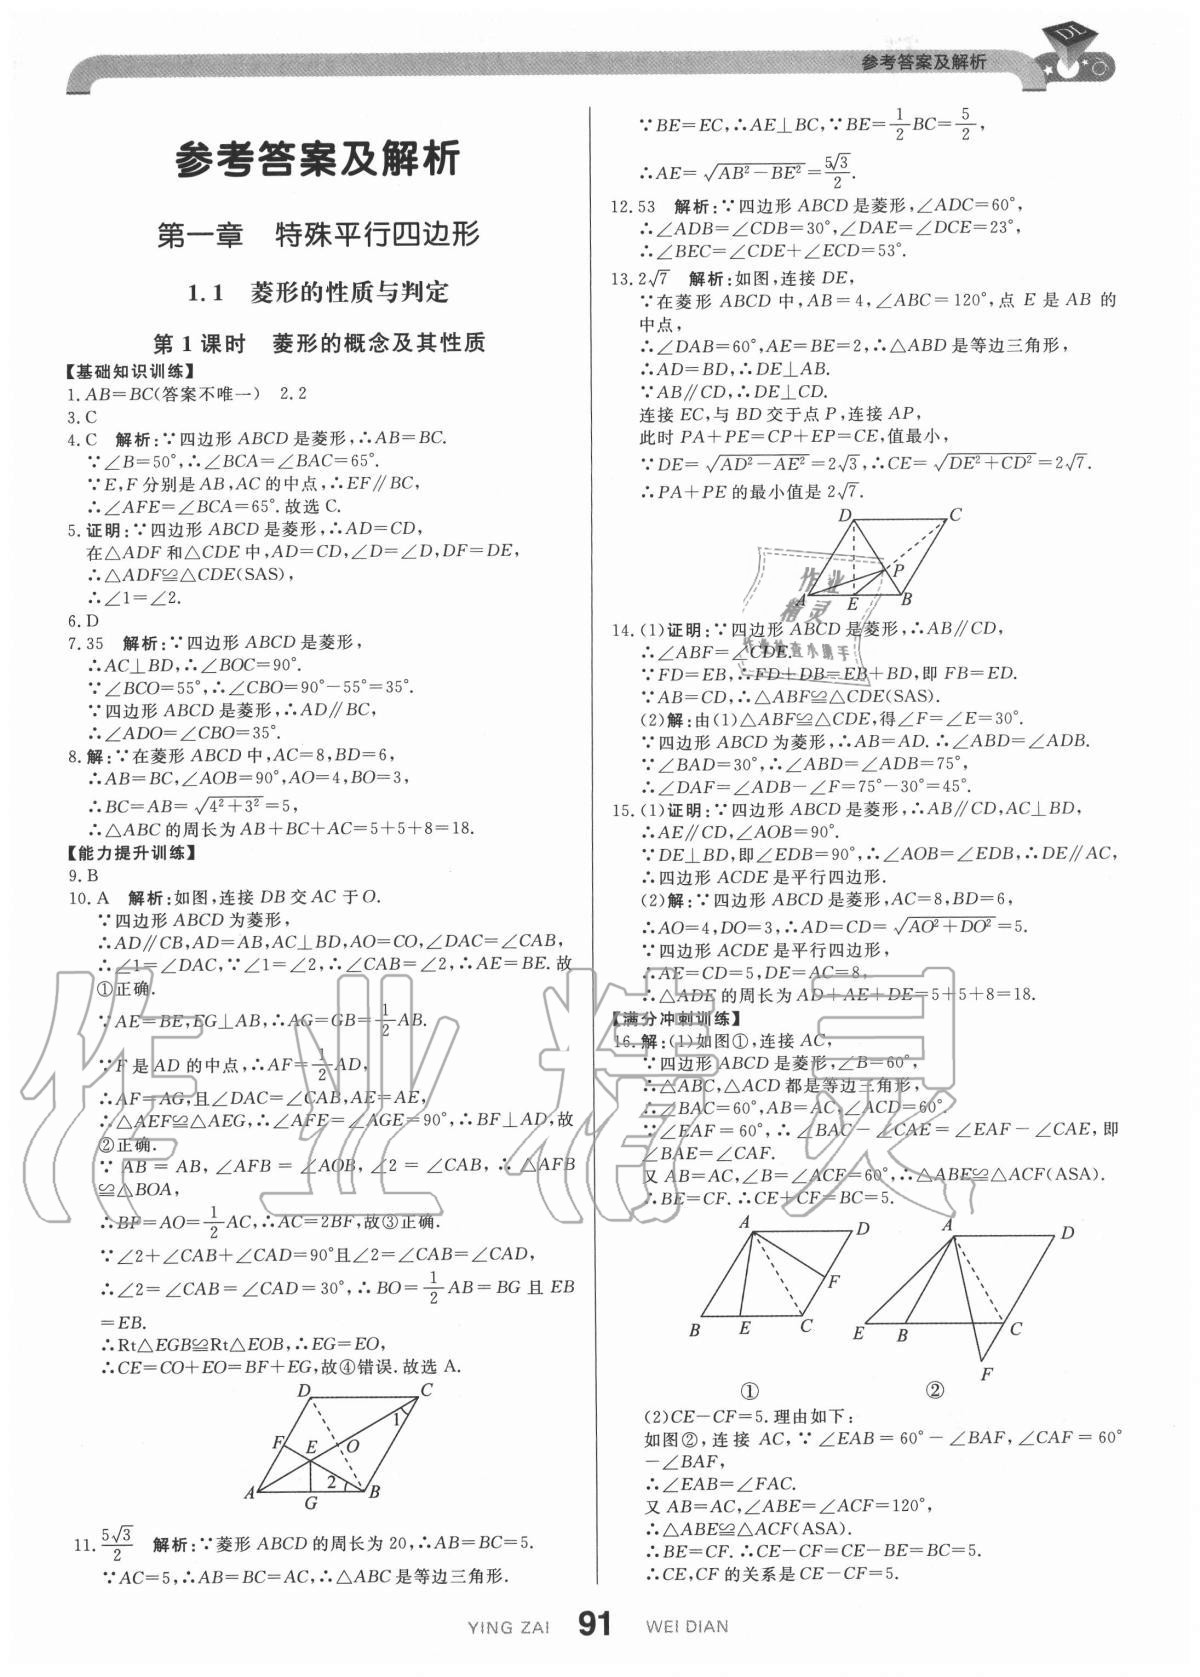 参考答案及解析
参考答案及解析
第一章 特殊平行四边形
1.1 菱形的性质与判定
第1课时 菱形的概念及其性质
【基础知识训练】
1.AB=BC(答案不唯一) 2.2
3.C
4.C 解析:∵四边形ABCD是菱形,∴AB=BC.
∵∠B=50°,∴∠BCA=∠BAC=65°.
∵E,F分别是AB,AC的中点,∴EF∥BC,
∴∠AFE=∠BCA=65°.故选C.
5.证明:∵四边形ABCD是菱形,∴AD=CD,
在△ADF和△CDE中,AD=CD,∠D=∠D,DF=DE,
∴△ADF≌△CDE(SAS),
∴∠1=∠2.
6.D
7.35 解析:∵四边形ABCD是菱形,
∴AC⊥BD,∴∠BOC=90°.
∵∠BCO=55°,∴∠CBO=90°-55°=35°.
∵四边形ABCD是菱形,∴AD∥BC,
∴∠ADO=∠CBO=35°.
8.解:∵在菱形ABCD中,AC=8,BD=6,
∴AB=BC,∠AOB=90°,AO=4,BO=3,
∴BC=AB=√(4²+3²)=5,
∴△ABC的周长为AB+BC+AC=5+5+8=18.
【能力提升训练】
9.B
10.A 解析:如图,连接DB交AC于O.
∵四边形ABCD为菱形,
∴AD∥CB,AD=AB,AC⊥BD,AO=CO,∠DAC=∠CAB,
∴∠1=∠DAC,∵∠1=∠2,∴∠CAB=∠2,∴AE=BE.故
①正确.
∵AE=BE,EG⊥AB,∴AG=GB=1/2AB.
∵F是AD的中点,∴AF=1/2AD,
∴AF=AG,且∠DAC=∠CAB,AE=AE,
∴△AEF≌△AEG,∴∠AFE=∠AGE=90°,∴BF⊥AD,故
②正确.
∵AB=AB,∠AFB=∠AOB,∠2=∠CAB,∴△AFB
≌△BOA,
∴BF=AO=1/2AC,∴AC=2BF,故③正确.
∵∠2+∠CAB+∠CAD=90°且∠2=∠CAB=∠CAD,
∴∠2=∠CAB=∠CAD=30°,∴BO=1/2AB=BG且EB
=EB.
∴Rt△EGB≌Rt△EOB,∴EG=EO,
∴CE=CO+EO=BF+EG,故④错误.故选A.
D C
1
F E O
2
A G B
11.5√3/2 解析:∵菱形ABCD的周长为20,∴AB=BC=5.
∵AC=5,∴AB=BC=AC,∴△ABC是等边三角形.
∵BE=EC,∴AE⊥BC,∵BE=1/2BC=5/2,
∴AE=√(AB²-BE²)=5√3/2.
12.53 解析:∵四边形ABCD是菱形,∠ADC=60°,
∴∠ADB=∠CDB=30°,∠DAE=∠DCE=23°,
∴∠BEC=∠CDE+∠ECD=53°.
13.2√7 解析:如图,连接DE,
∵在菱形ABCD中,AB=4,∠ABC=120°,点E是AB的
中点,
∴∠DAB=60°,AE=BE=2,∴△ABD是等边三角形,
∴AD=BD,∴DE⊥AB.
∵AB∥CD,∴DE⊥CD.
连接EC,与BD交于点P,连接AP,
此时PA+PE=CP+EP=CE,值最小,
∵DE=√(AD²-AE²)=2√3,∴CE=√(DE²+CD²)=2√7.
∴PA+PE的最小值是2√7.
D C
P
A E B
14.(1)证明:∵四边形ABCD是菱形,∴AB∥CD,
∴∠ABF=∠CDE.
∵FD=EB,∴FD+DB=EB+BD,即FB=ED.
∵AB=CD,∴△ABF≌△CDE(SAS).
(2)解:由(1)△ABF≌△CDE,得∠F=∠E=30°.
∵四边形ABCD为菱形,∴AB=AD.∴∠ABD=∠ADB.
∵∠BAD=30°,∴∠ABD=∠ADB=75°,
∴∠DAF=∠ADB-∠F=75°-30°=45°.
15.(1)证明:∵四边形ABCD是菱形,∴AB∥CD,AC⊥BD,
∴AE∥CD,∠AOB=90°.
∵DE⊥BD,即∠EDB=90°,∴∠AOB=∠EDB,∴DE∥AC,
∴四边形ACDE是平行四边形.
(2)解:∵四边形ABCD是菱形,AC=8,BD=6,
∴AO=4,DO=3,∴AD=CD=√(AO²+DO²)=5.
∵四边形ACDE是平行四边形,
∴AE=CD=5,DE=AC=8,
∴△ADE的周长为AD+AE+DE=5+5+8=18.
【满分冲刺训练】
16.解:(1)如图①,连接AC,
∵四边形ABCD是菱形,∠B=60°,
∴△ABC,△ACD都是等边三角形,
∴∠BAC=60°,AB=AC,∠ACD=60°.
∵∠EAF=60°,∴∠BAC-∠CAE=∠EAF-∠CAE,即
∠BAE=∠CAF.
又AB=AC,∠B=∠ACF=60°,∴△ABE≌△ACF(ASA).
∴BE=CF.∴CE+CF=BC=5.
A D A D
F
B E C E B C
F
① ②
(2)CE-CF=5.理由如下:
如图②,连接AC,∵∠EAB=60°-∠BAF,∠CAF=60°
-∠BAF,
∴∠EAB=∠FAC.
又AB=AC,∠ABE=∠ACF=120°,
∴△ABE≌△ACF(ASA).
∴BE=CF.∴CE-CF=CE-BE=BC=5.
∴CE,CF的关系是CE-CF=5.
作业精灵
作业检查小助手
作业精灵
YING ZAI 91 WEI DIAN